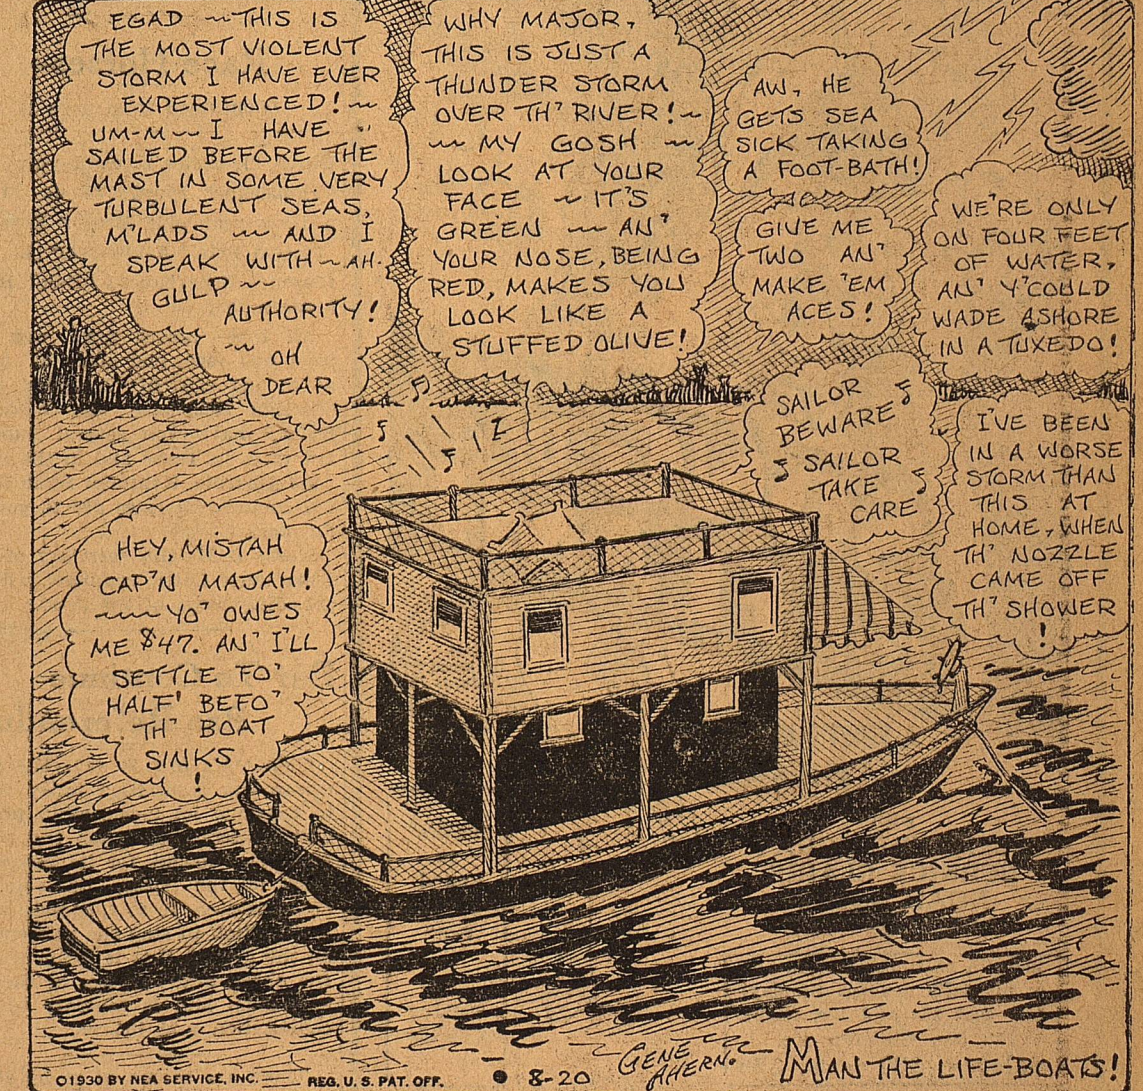 EGAD ~ THIS IS
THE MOST VIOLENT
STORM I HAVE EVER
EXPERIENCED! ~
UM-M ~ I HAVE
SAILED BEFORE THE
MAST IN SOME VERY
TURBULENT SEAS,
M'LADS ~ AND I
SPEAK WITH ~ AH-
GULP ~
AUTHORITY!
~ OH
DEAR
WHY MAJOR,
THIS IS JUST A
THUNDER STORM
OVER TH' RIVER! ~
~ MY GOSH ~
LOOK AT YOUR
FACE ~ IT'S
GREEN ~ AN'
YOUR NOSE, BEING
RED, MAKES YOU
LOOK LIKE A
STUFFED OLIVE!
AW, HE
GETS SEA
SICK TAKING
A FOOT-BATH!
GIVE ME
TWO AN'
MAKE 'EM
ACES!
WE'RE ONLY
ON FOUR FEET
OF WATER,
AN' Y'COULD
WADE ASHORE
IN A TUXEDO!
SAILOR
BEWARE
SAILOR
TAKE
CARE
I'VE BEEN
IN A WORSE
STORM THAN
THIS AT
HOME, WHEN
TH' NOZZLE
CAME OFF
TH' SHOWER
!
HEY, MISTAH
CAP'N MAJAH!
~ YO' OWES
ME $47. AN' I'LL
SETTLE FO'
HALF' BEFO'
TH' BOAT
SINKS
!
©1930 BY NEA SERVICE, INC. REG. U. S. PAT. OFF. 8-20
GENE
AHERN.
MAN THE LIFE-BOATS!